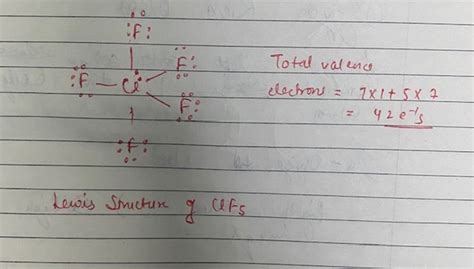 F
F Cl F
F
F
Total valence
electrons = 7x1 + 5x7
= 42 e⁻s
Lewis Structure of ClF5